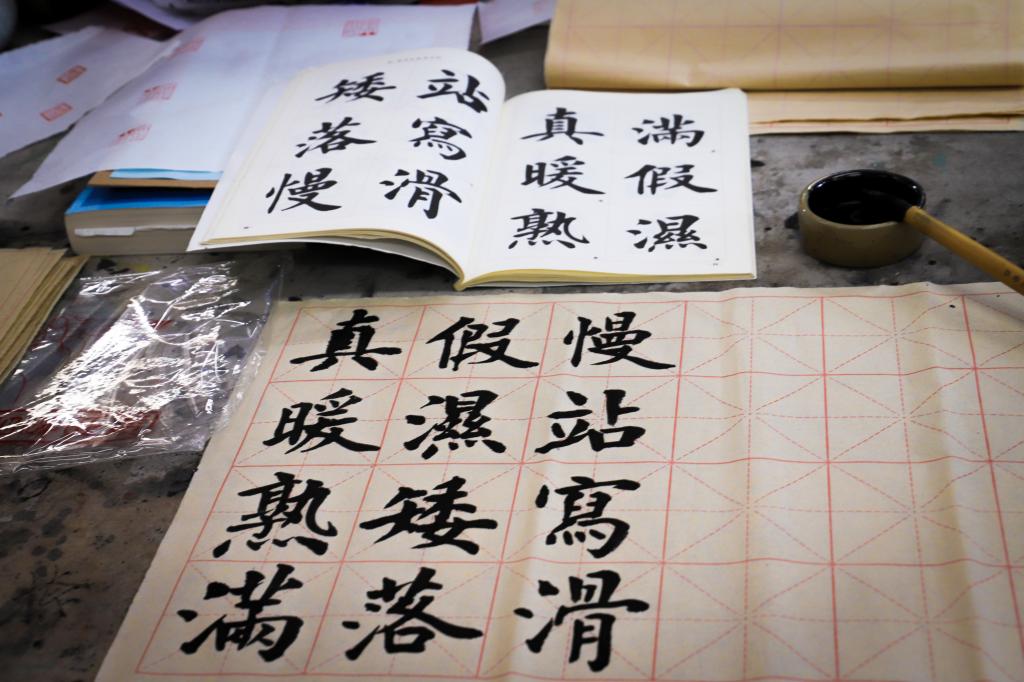 真暖熟
滿假濕
矮落慢
站寫滑
真暖熟滿
假濕矮落
慢站寫滑